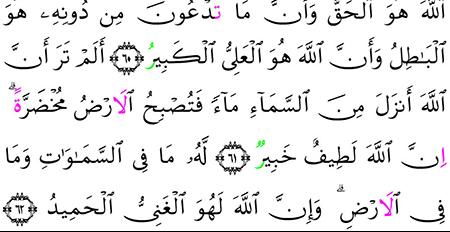 ٱللَّهَ هُوَ ٱلْحَقُّ وَأَنَّ مَا تَدْعُونَ مِن دُونِهِۦ هُوَ
ٱلْبَٰطِلُ وَأَنَّ ٱللَّهَ هُوَ ٱلْعَلِىُّ ٱلْكَبِيرُ ٦٠ أَلَمْ تَرَ أَنَّ
ٱللَّهَ أَنزَلَ مِنَ ٱلسَّمَآءِ مَآءً فَتُصْبِحُ ٱلَارْضُ مُخْضَرَّةً ۗ
اِنَّ ٱللَّهَ لَطِيفٌ خَبِيرٌ ٦١ لَّهُۥ مَا فِى ٱلسَّمَٰوَٰتِ وَمَا
فِى ٱلَارْضِ ۗ وَإِنَّ ٱللَّهَ لَهُوَ ٱلْغَنِىُّ ٱلْحَمِيدُ ٦٢